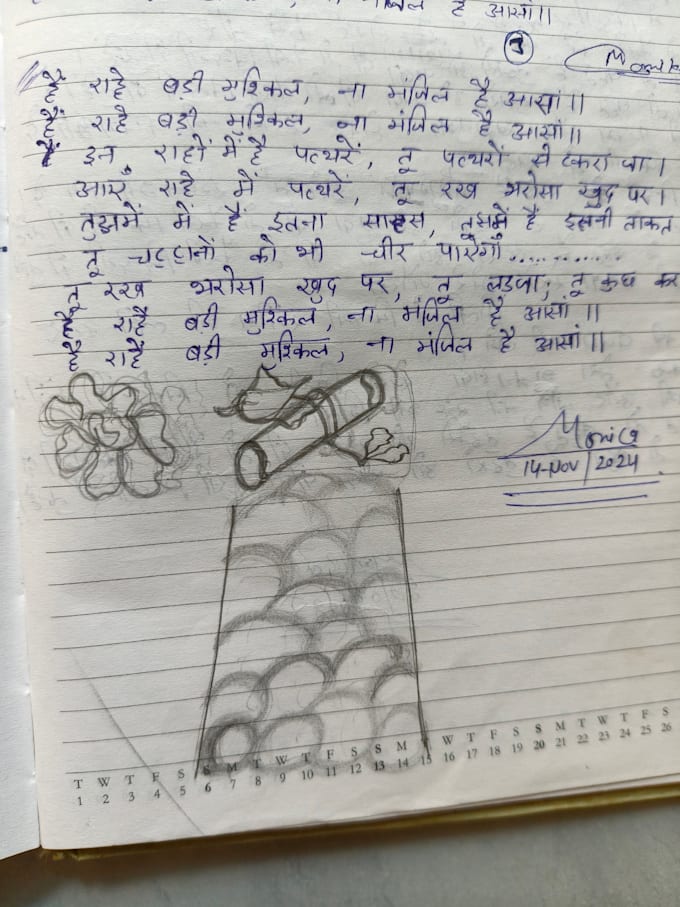 है आसां।।
3
है राहे बड़ी मुश्किल, ना मंजिल है आसां।।
है राहे बड़ी मुश्किल, ना मंजिल है आसां।।
है इन राहों में है पत्थरें, तू पत्थरों से टकरा जा।
आएँ राहे में पत्थरें, तू रख भरोसा खुद पर।
तुझमें में है इतना साहस, तुझमें है इतनी ताकत
तू चट्टानों को भी चीर पाएगाँ............
तू रख भरोसा खुद पर, तू लड़जा, तू कुछ कर
है राहे बड़ी मुश्किल, ना मंजिल है आसां।।
है राहे बड़ी मुश्किल, ना मंजिल है आसां।।
Monica
14-Nov/2024
T W T F S S M T W T F S S M T W T F S S M T W T F S
1 2 3 4 5 6 7 8 9 10 11 12 13 14 15 16 17 18 19 20 21 22 23 24 25 26